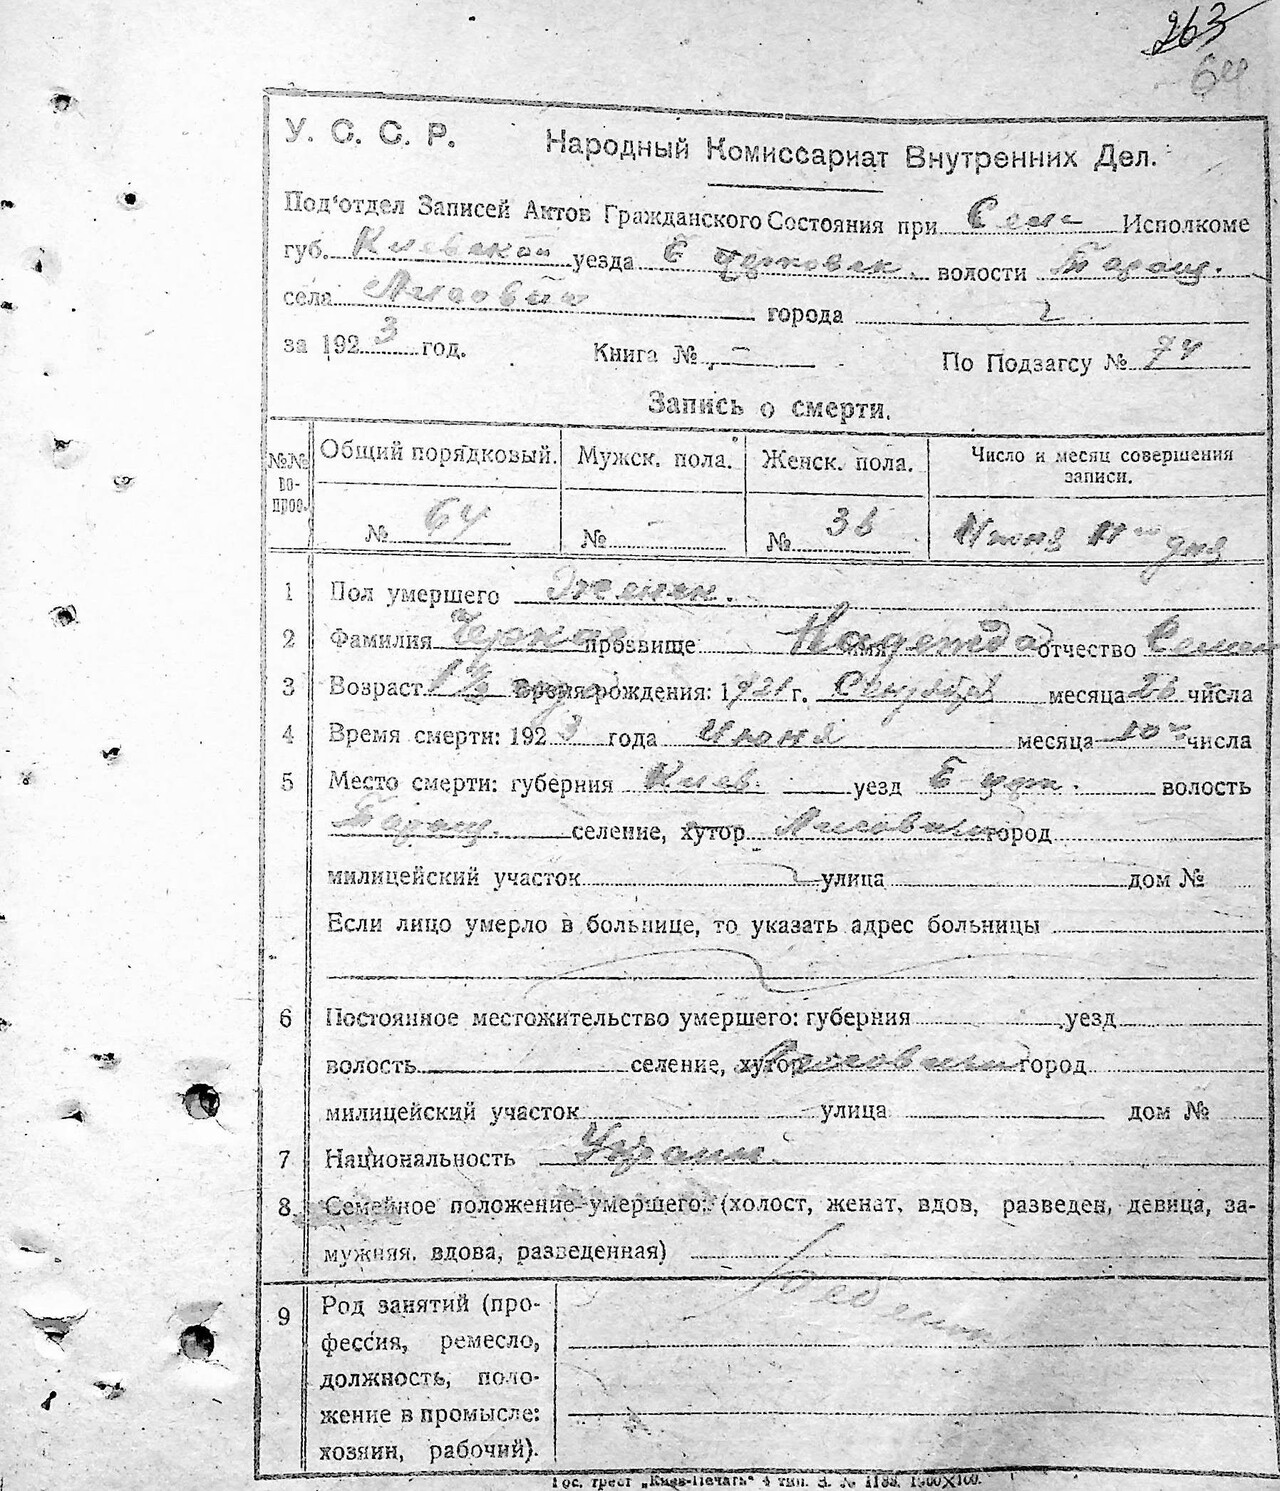 263
64
У. С. С. Р. Народный Комиссариат Внутренних Дел.
Под'отдел Записей Актов Гражданского Состояния при Сель Исполкоме
губ. Киевской уезда Б Церковск. волости Таращ.
села города
за 1923 год. Книга № - По Подзагсу № 74
Запись о смерти.
№№ во-прос. Общий порядковый. Мужск. пола. Женск. пола. Число и месяц совершения записи.
№ 64 № - № 36 Июня 11 дня
1 Пол умершего Женск.
2 Фамилия прозвище имя Надежда отчество Семен
3 Возраст 1 1/2 года Время рождения: 1921 г. Сентября месяца 26 числа
4 Время смерти: 1923 года Июня месяца 10 числа
5 Место смерти: губерния Киев. уезд Б-церк. волость
Таращ. селение, хутор город
милицейский участок улица дом №
Если лицо умерло в больнице, то указать адрес больницы
6 Постоянное местожительство умершего: губерния уезд
волость селение, хутор город
милицейский участок улица дом №
7 Национальность Украин.
8 Семейное положение умершего: (холост, женат, вдов, разведен, девица, за-
мужняя, вдова, разведенная)
9 Род занятий (про-
фессия, ремесло,
должность, поло-
жение в промысле:
хозяин, рабочий).
Гос. трест „Киев-Печать" 4 тип. З. № 1188. 1500×100.